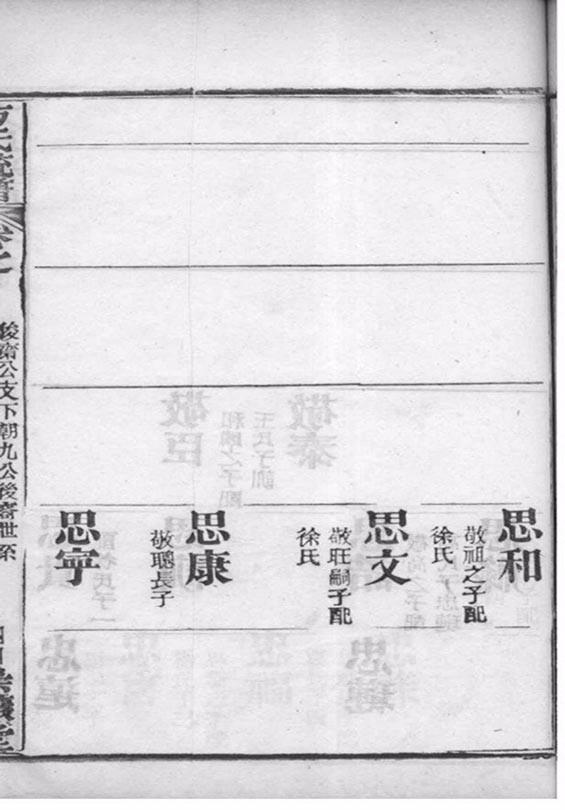 思和
敬祖之子配
徐氏
思文
敬旺嗣子配
徐氏
思康
敬聰長子
思寧
卷之
公支下朝九公後裔世系